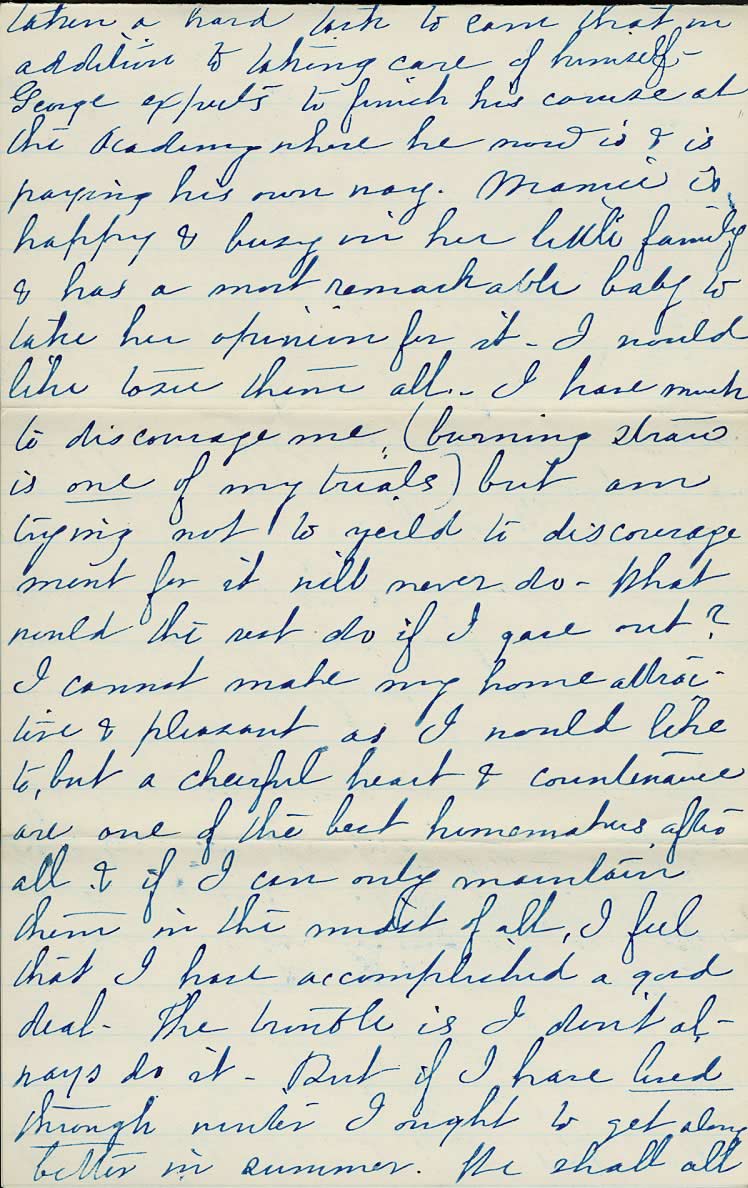 taken a hard task to earn that in
addition to taking care of himself -
George expects to finish his course at
the Academy where he now is & is
paying his own way. Mamie is
happy & busy in her little family
& has a most remarkable baby to
take her opinion for it - I would
like to see them all - I have much
to discourage me, (burning straw
is one of my trials) but am
trying not to yeild to discourage
ment for it will never do - What
would the rest do if I gave out?
I cannot make my home attrac-
tive & pleasant as I would like
to, but a cheerful heart & countenance
are one of the best homemakers after
all & if I can only maintain
them in the midst of all, I feel
that I have accomplished a good
deal - The trouble is I don't al-
ways do it - But if I have lived
through winter I ought to get along
better in summer. We shall all